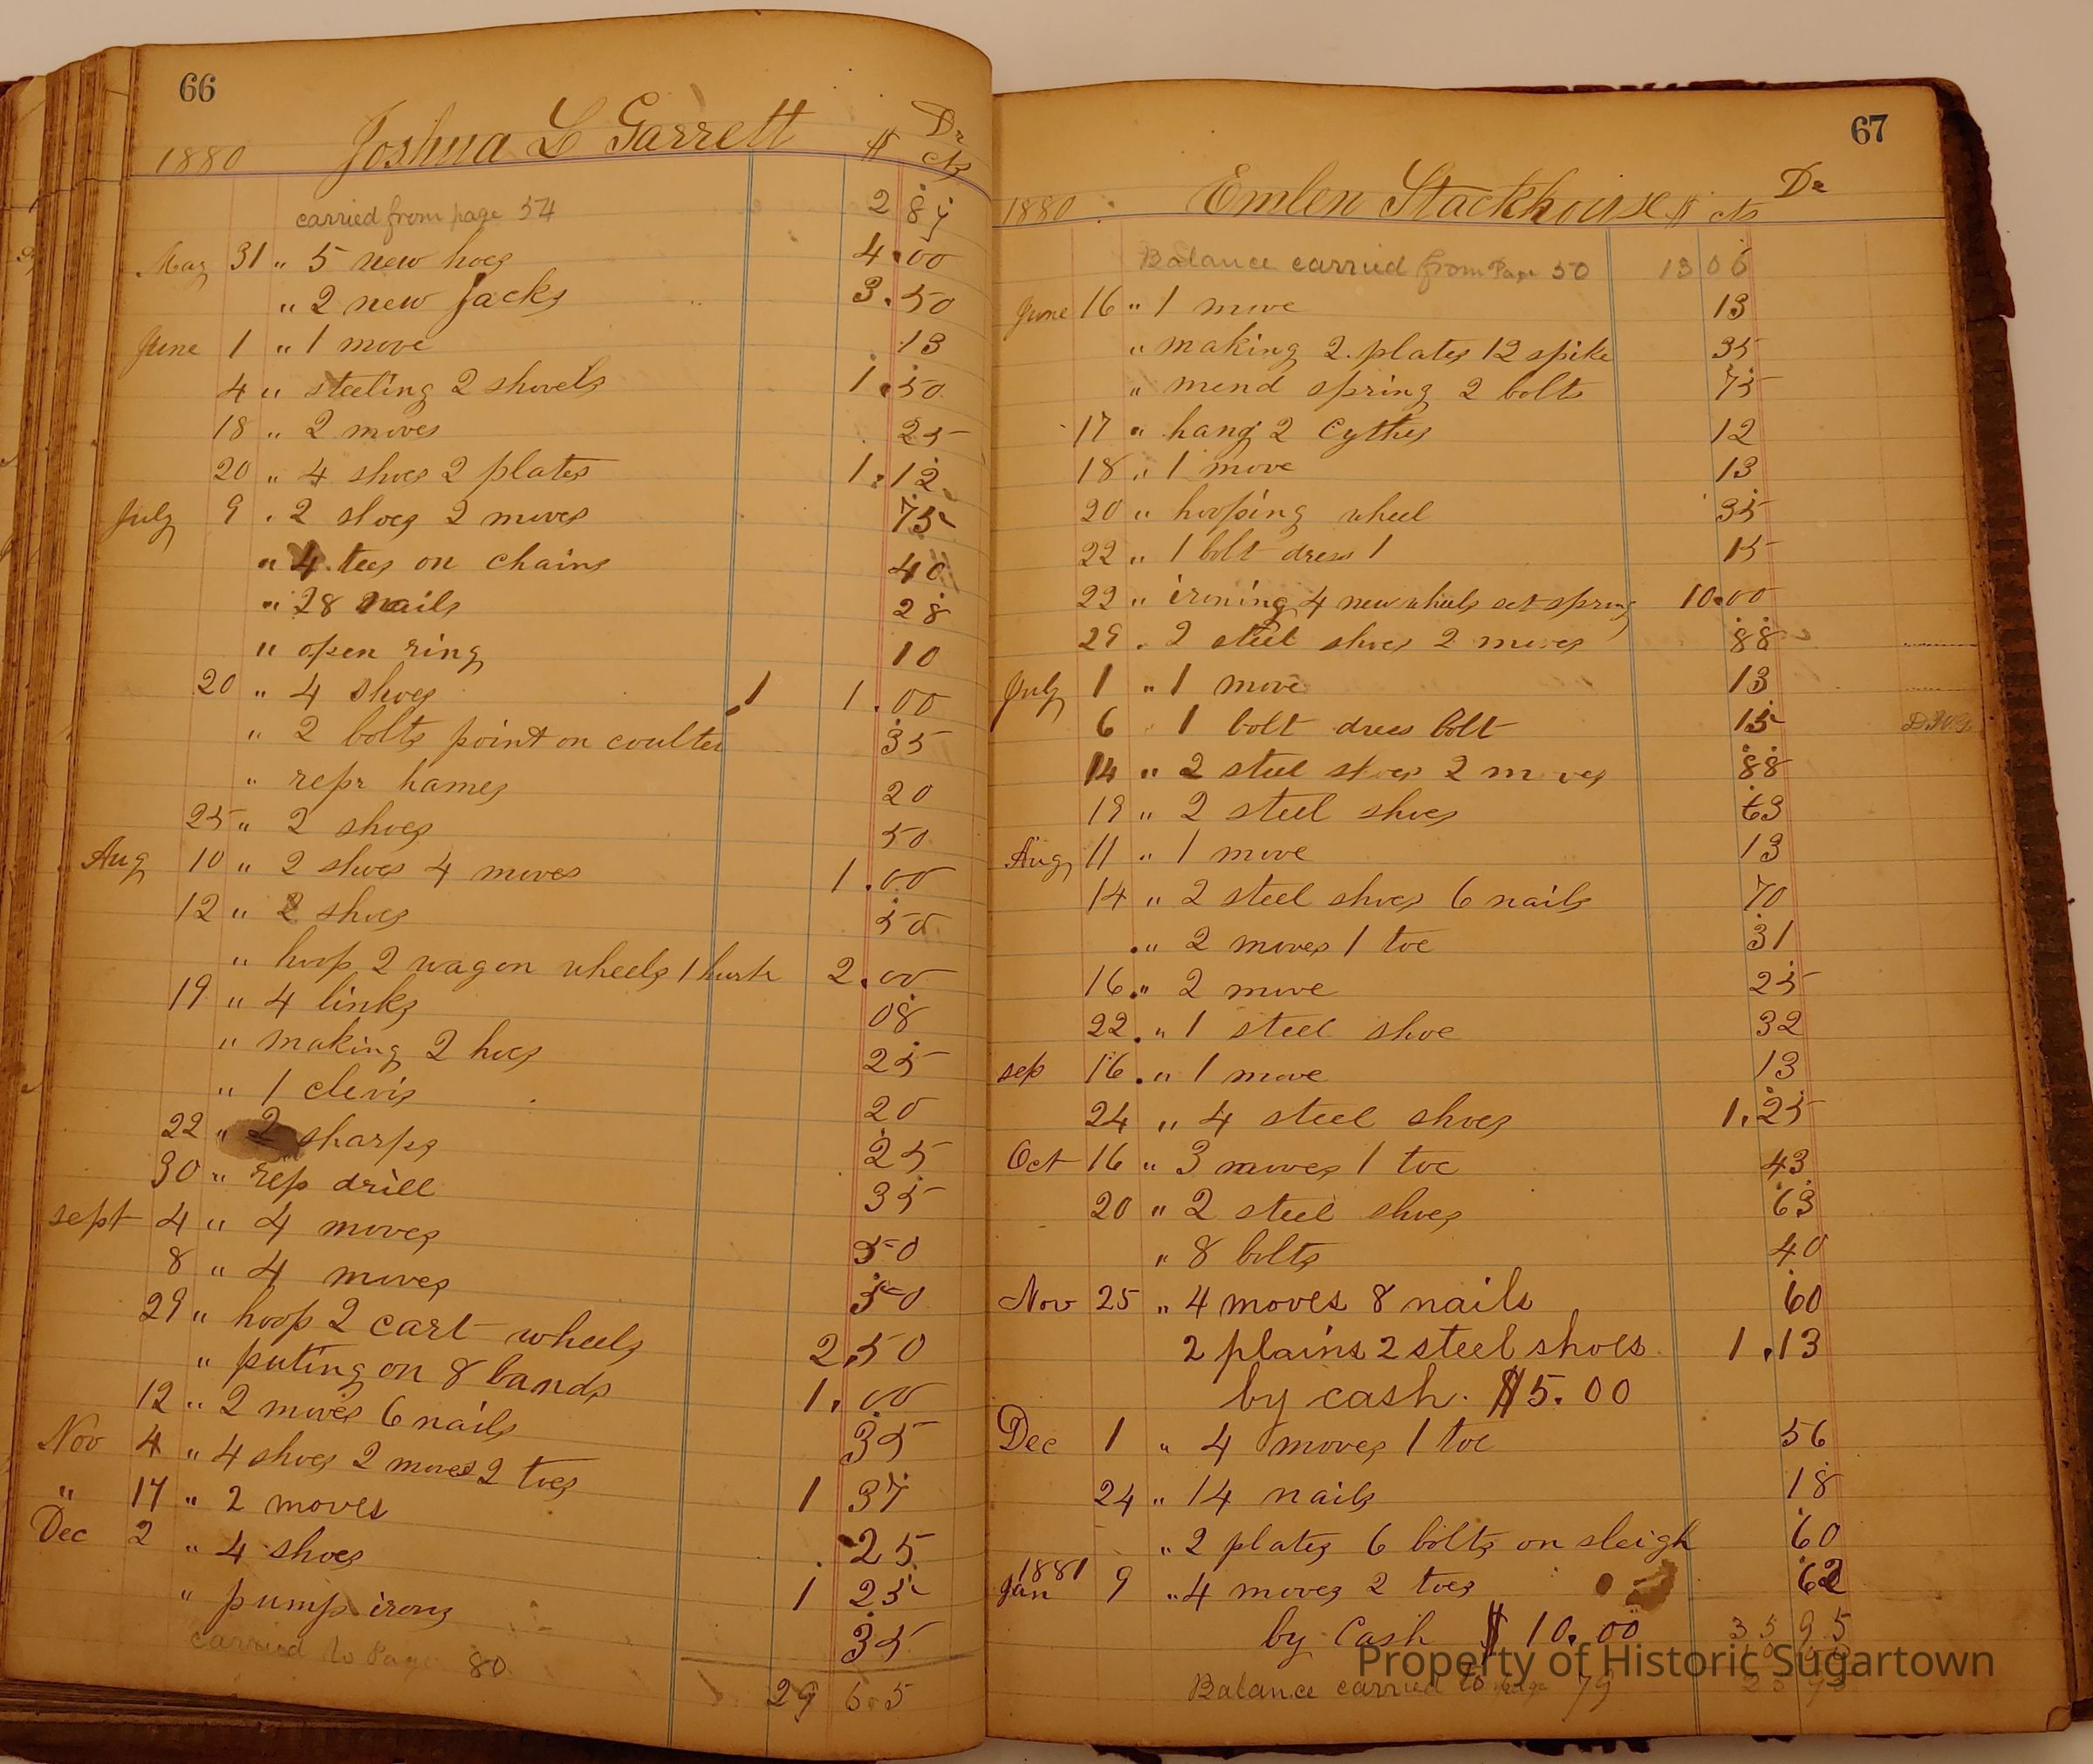 66
Dr
1880 Joshua L Garrett $ cts
carried from page 54 2 87
May 31 " 5 new hoes 4.00
" 2 new Jacks 3.50
June 1 " 1 move .13
4 " steeling 2 shovels 1.50
18 " 2 moves 25
20 " 4 shoes 2 plates 1.12
July 9 " 2 shoes 2 moves 75
" 4 toes on chains 40
" 28 nails 28
" open ring 10
20 " 4 shoes 1 1.00
" 2 bolts point on coulter 35
" repr hames 20
25 " 2 shoes 50
Aug 10 " 2 shoes 4 moves 1.00
12 " 2 shoes 50
" hoop 2 wagon wheels 1 2.00
19 " 4 links 08
" making 2 hoes 25
" 1 clevis 20
22 " 2 sharps 25
30 " rep drill 35
sept 4 " 4 moves 50
8 " 4 moves 50
29 " hoop 2 cart wheels 2.50
" puting on 8 bands 1.00
12 " 2 moves 6 nails 35
Nov 4 " 4 shoes 2 moves 2 toes 1 37
" 17 " 2 moves .25
Dec 2 " 4 shoes 1 25
" pump irons 35
carried to Page 80
29 65
67
1880 Emlen Stackhouse $ cts Dr
Balance carried from Page 50 13 06
June 16 " 1 move 13
" making 2 plates 12 spike 35
" mend spring 2 bolts 75
17 " hang 2 Cythes 12
18 " 1 move 13
20 " hooping wheel 35
22 " 1 bolt dress 1 15
22 " ironing 4 new wheels set spring 10.00
29 " 2 steel shoes 2 moves 88
July 1 " 1 move 13
6 1 bolt dress bolt 15
14 " 2 steel shoes 2 moves 88
19 " 2 steel shoes 63
Aug 11 " 1 move 13
14 " 2 steel shoes 6 nails 70
" 2 moves 1 toe 31
16 " 2 move 25
22 " 1 steel shoe 32
sep 16 " 1 move 13
24 " 4 steel shoes 1.25
Oct 16 " 3 moves 1 toe 43
20 " 2 steel shoes 63
" 8 bolts 40
Nov 25 " 4 moves 8 nails 60
2 plains 2 steel shoes 1.13
by cash. $5.00
Dec 1 " 4 moves 1 toe 56
24 " 14 nails 18
" 2 plates 6 bolts on sleigh 60
1881
Jan 9 " 4 moves 2 toes 62
by Cash $10.00 35 95
Property of Historic Sugartown
Balance carried to page 79